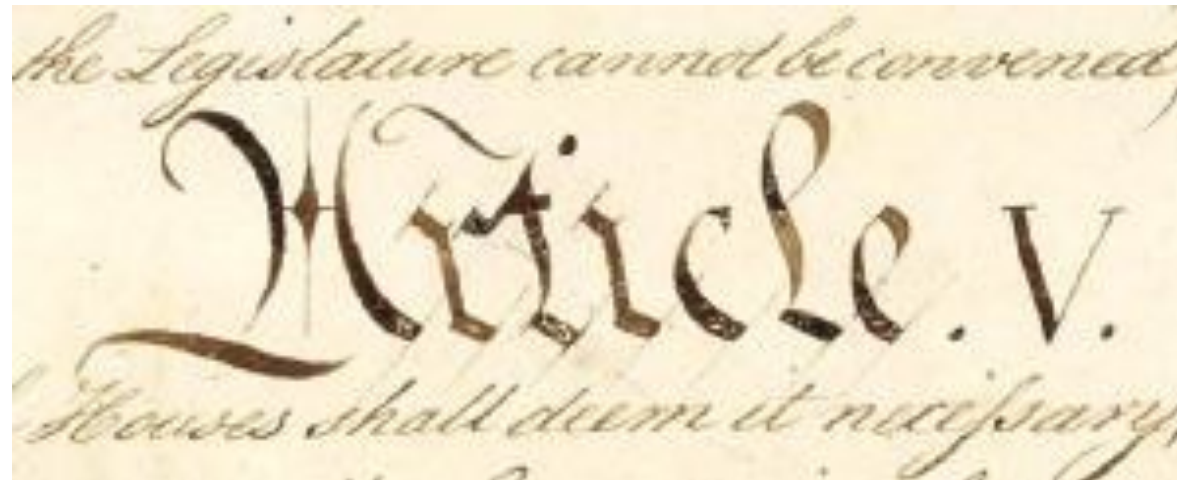 the Legislature cannot be convened
Article. V.
Houses shall deem it neceſsary,